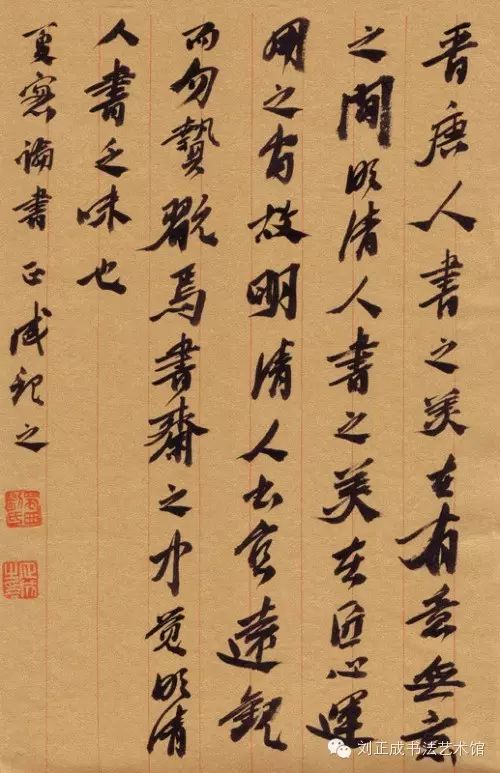 晉唐人書之美在有意無意
之間明清人書之美在匠心運
用之故明清人书宜遠觀
而勿褻翫焉書齋之中覺明清
人書乏味也
夏窓論書正成之
刘正成书法艺术馆